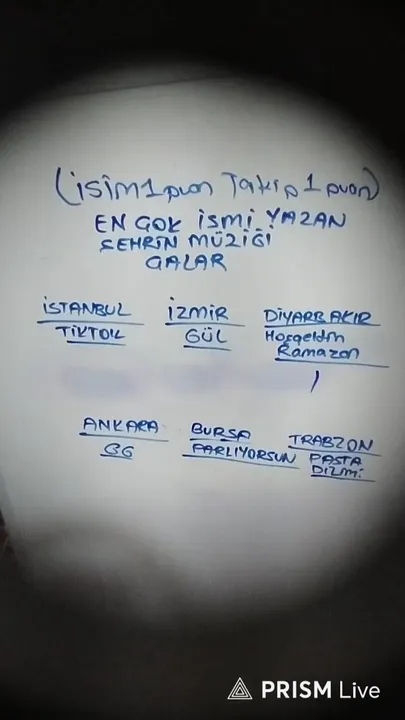 (isim 1 puan Takip 1 puan)
EN ÇOK İSMİ YAZAN
ŞEHRİN MÜZİĞİ
ÇALAR
İSTANBUL İZMİR DİYARBAKIR
TİKTOK GÜL Hoşgeldin
Ramazan
ANKARA BURSA TRABZON
GG PARLIYORSUN PASTA
DİZMİ
PRISM Live